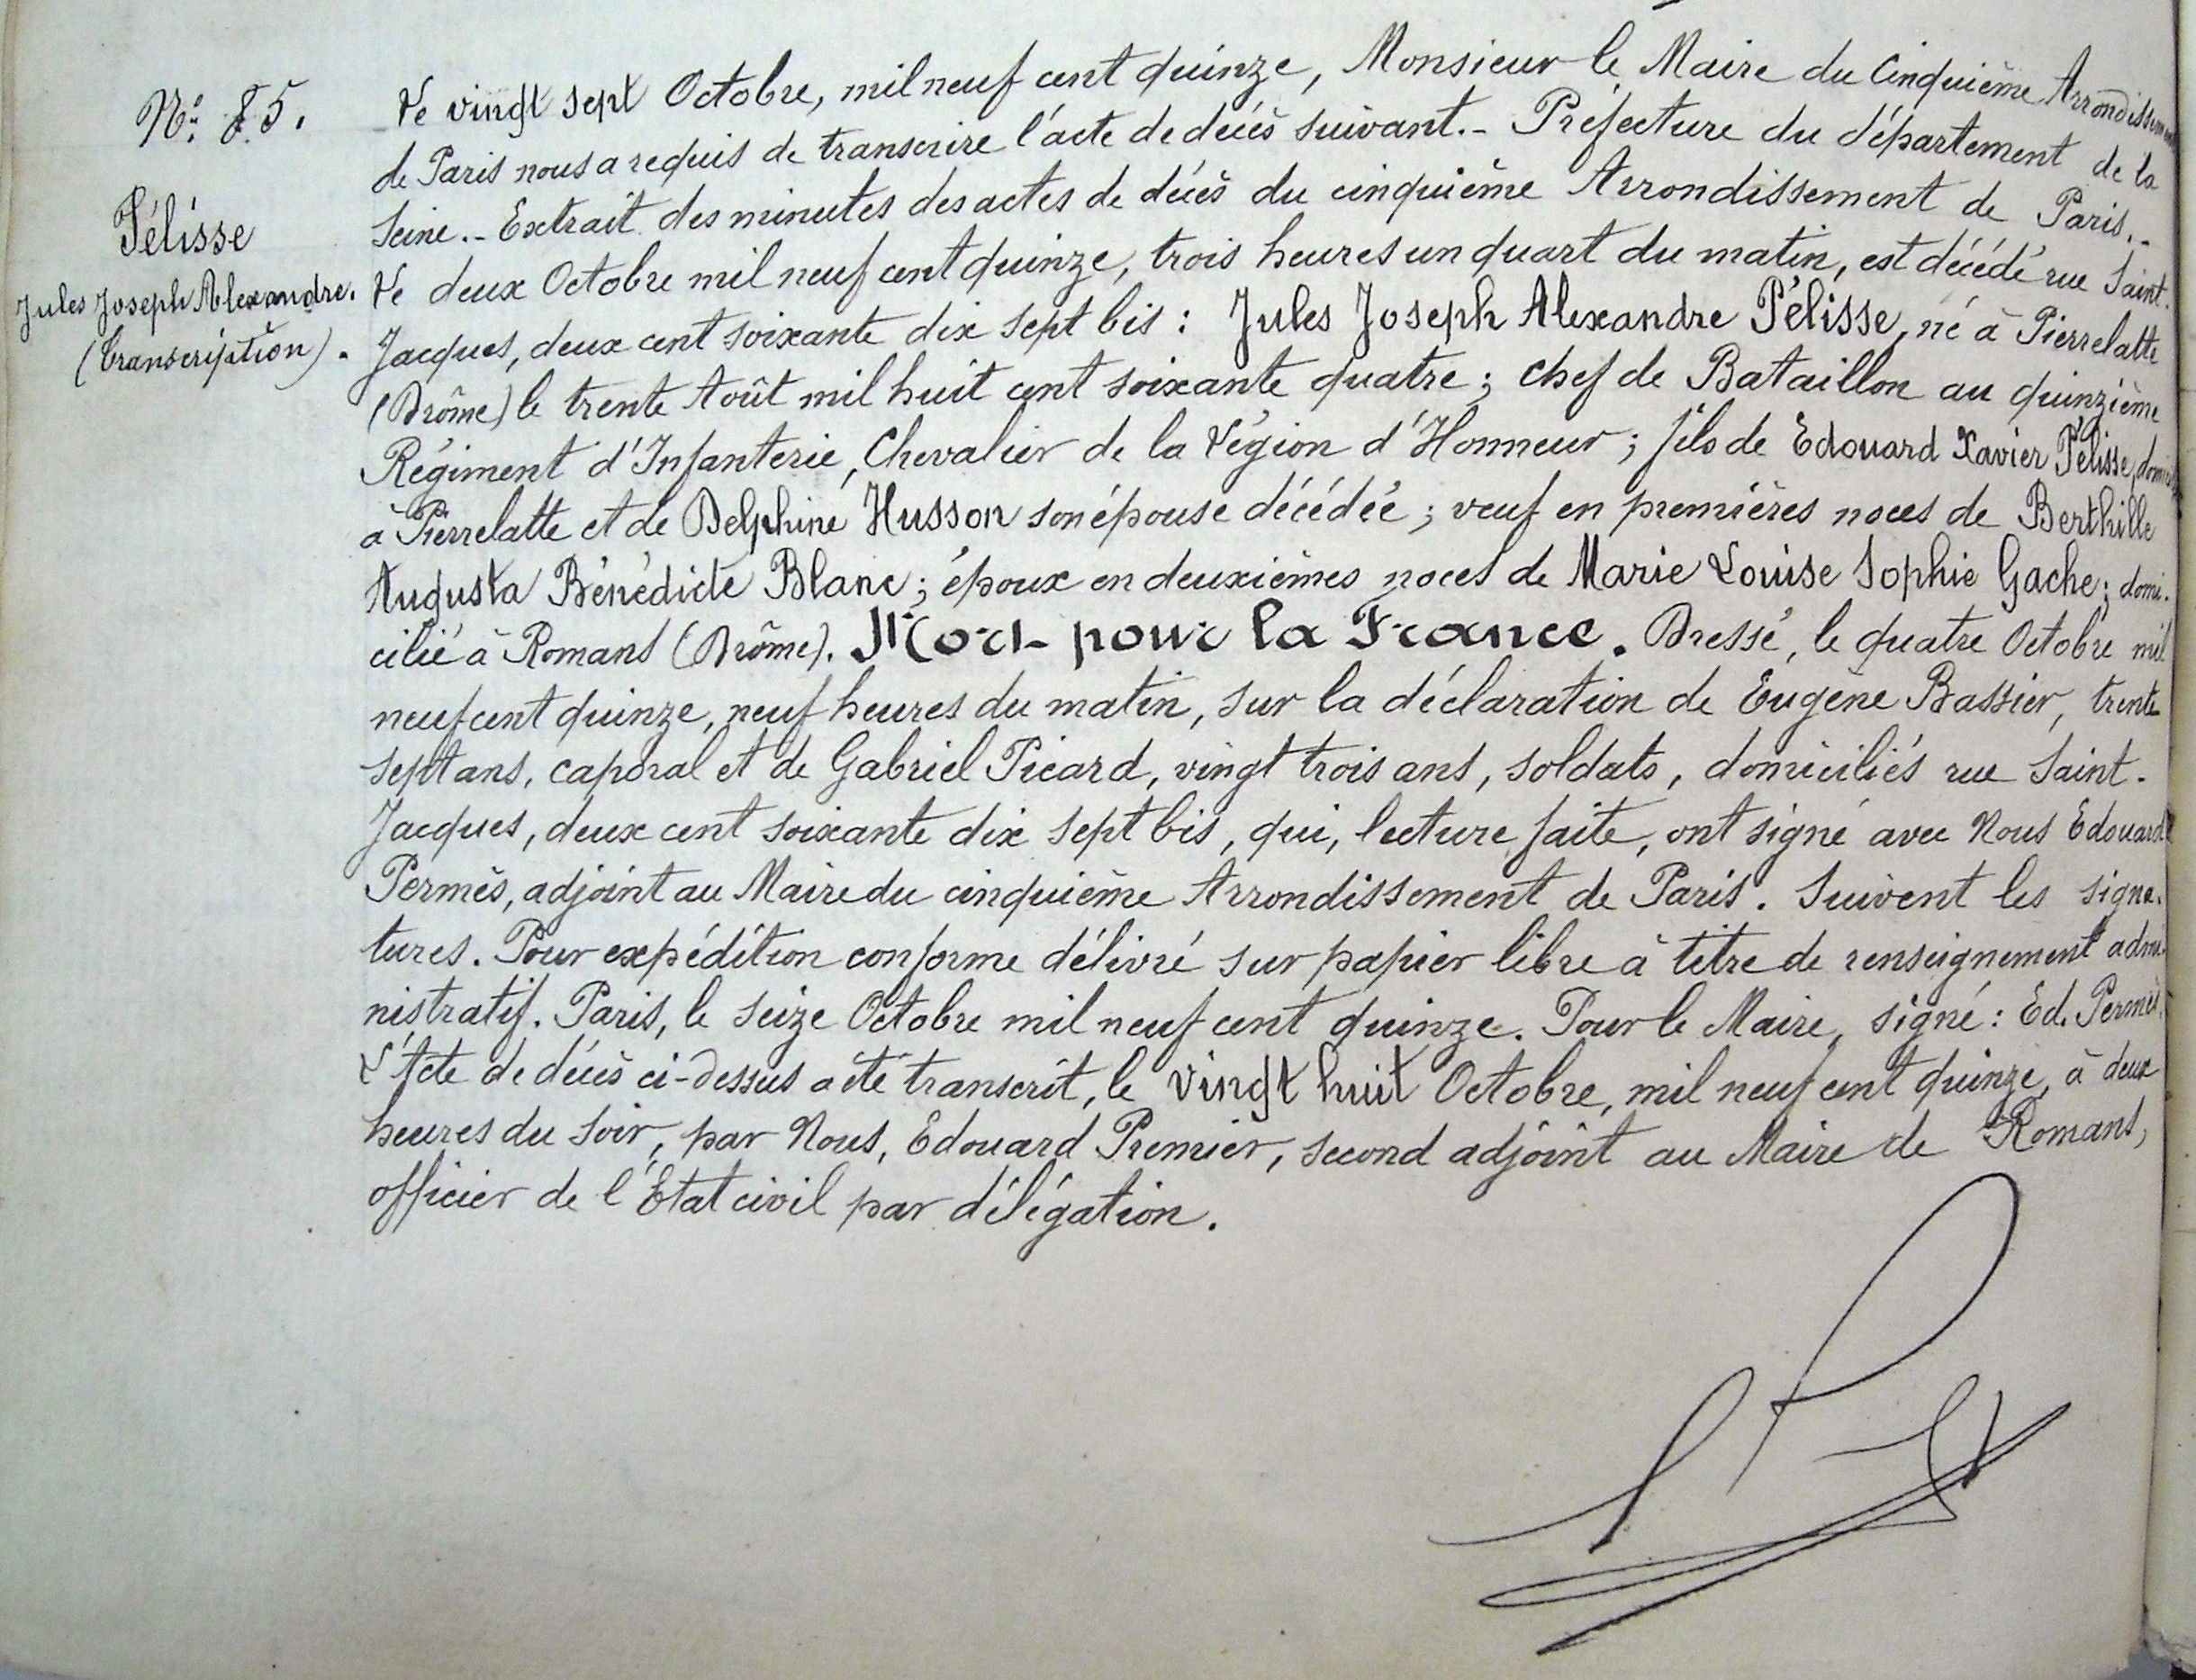 N° 85.
Pélisse
Jules Joseph Alexandre.
(transcription).
Le vingt sept Octobre, mil neuf cent quinze, Monsieur le Maire du Cinquième Arrondissement
de Paris nous a requis de transcrire l'acte de décès suivant.- Préfecture du département de la
Seine.- Extrait des minutes des actes de décès du cinquième Arrondissement de Paris.-
Le deux Octobre mil neuf cent quinze, trois heures un quart du matin, est décédé rue Saint-
Jacques, deux cent soixante dix sept bis : Jules Joseph Alexandre Pélisse, né à Pierrelatte
(Drôme) le trente Août mil huit cent soixante quatre ; chef de Bataillon au quinzième
Régiment d'Infanterie, Chevalier de la Légion d'Honneur ; fils de Edouard Xavier Pélisse, domicilié
à Pierrelatte et de Delphine Husson son épouse décédée ; veuf en premières noces de Berthille
Augusta Bénédicte Blanc ; époux en deuxièmes noces de Marie Louise Sophie Gache ; domi-
cilié à Romans (Drôme). Mort pour la France. Dressé, le quatre Octobre mil
neuf cent quinze, neuf heures du matin, sur la déclaration de Eugène Bassier, trente
sept ans, caporal et de Gabriel Picard, vingt trois ans, soldats, domiciliés rue Saint-
Jacques, deux cent soixante dix sept bis, qui, lecture faite, ont signé avec Nous Edouard
Permès, adjoint au Maire du cinquième Arrondissement de Paris. Suivent les signa-
tures. Pour expédition conforme délivré sur papier libre à titre de renseignement admi-
nistratif. Paris, le seize Octobre mil neuf cent quinze. Pour le Maire, signé : Ed. Permès.
L'Acte de décès ci-dessus a été transcrit, le vingt huit Octobre, mil neuf cent quinze, à deux
heures du soir, par Nous, Edouard Premier, second adjoint au Maire de Romans,
officier de l'Etat civil par délégation.